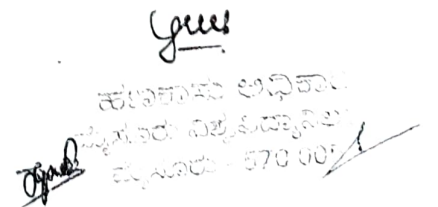 ಹಣಕಾಸು ಅಧಿಕಾ
ಮೈಸೂರು ವಿಶ್ವವಿದ್ಯಾನಿಲ
ಮೈಸೂರು - 570 005